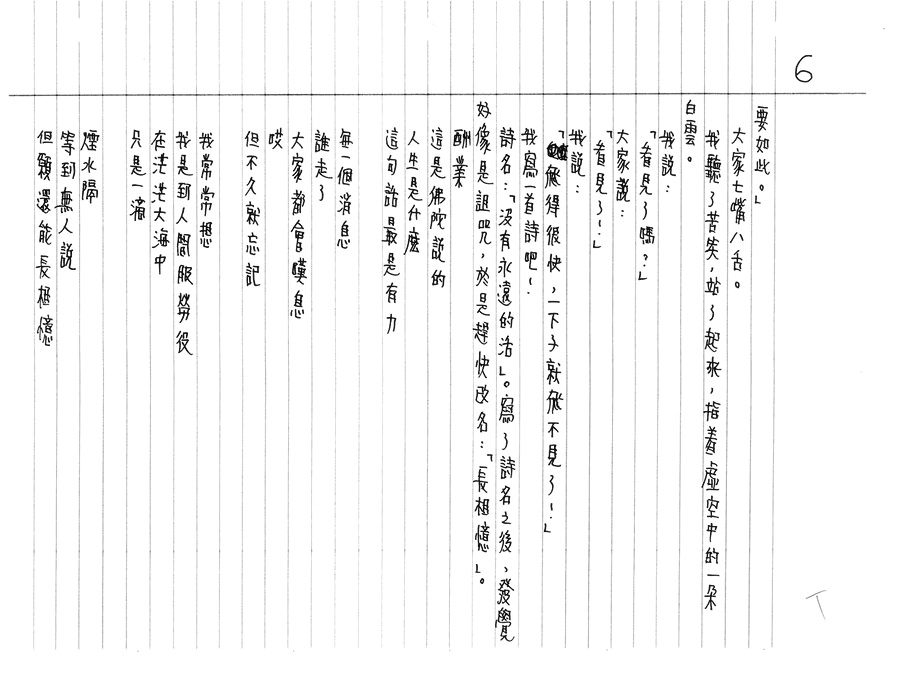 6
要如此。」
大家七嘴八舌。
我聽了苦笑，站了起來，指著虛空中的一朵
白雲。
我說：
「看見了嗎？」
大家說：
「看見了！」
我說：
「飛得很快，一下子就飛不見了！」
我寫一首詩吧！
詩名：「沒有永遠的活」。寫了詩名之後，發覺
好像是詛咒，於是趕快改名：「長相憶」。
酬業
這是佛陀說的
人生是什麼
這句話最是有力
每一個消息
誰走了
大家都會嘆息
哎
但不久就忘記
我常常想
我是到人間服勞役
在茫茫大海中
只是一滴
煙水隔
等到無人說
但願還能長相憶